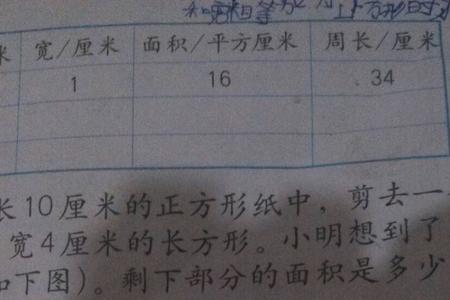 和宽相等
米 宽/厘米 面积/平方厘米 周长/厘米
1 16 34
长10厘米的正方形纸中，剪去一
宽4厘米的长方形。小明想到了
如下图）。剩下部分的面积是多少